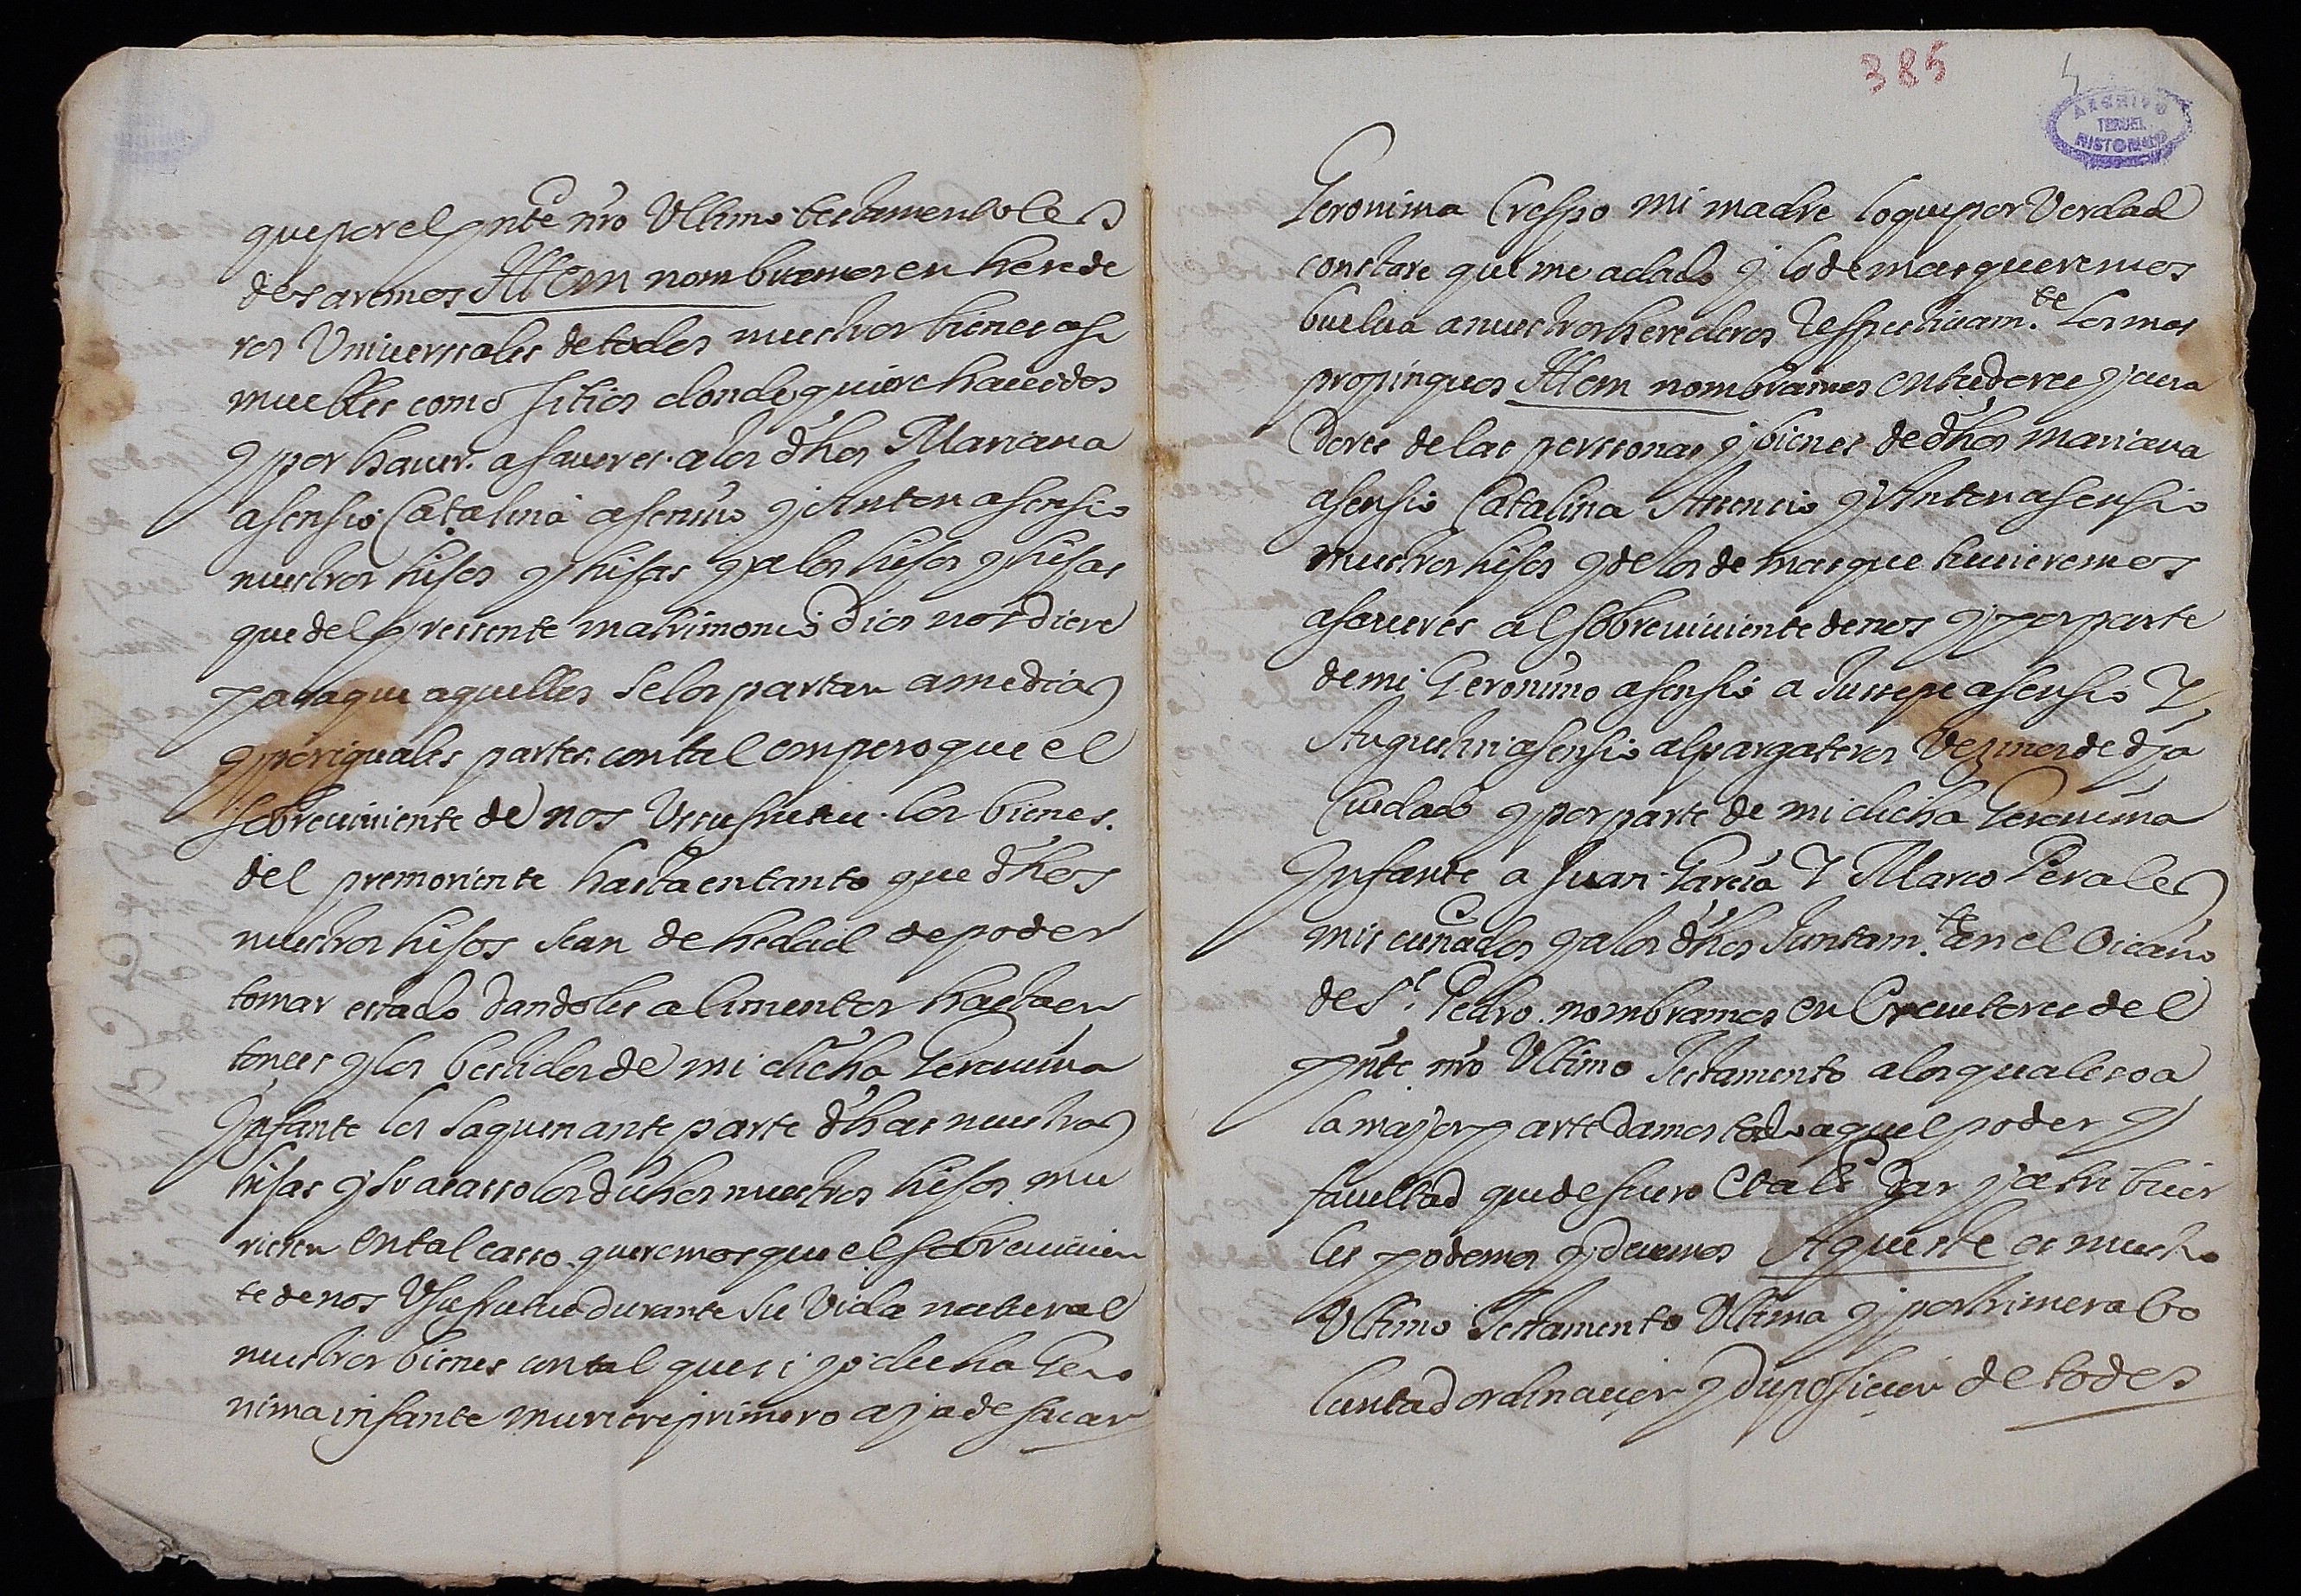 que por el pnte nro Ultimo testamento les
dexaremos Ittem nombramos en herede
ros Universsales de todos nuestros bienes assi
muebles como sitios donde quiere havidos
y por haver. a saver es. a los dhos Mariana
asensio Catalina asensio y Anton asensio
nuestros hijos y hijas y a los hijos y hijas
que del pressente matrimonio Dios nos diere
para que aquellos se los partan a medias
y por iguales partes con tal empero que el
sobreviviente de nos Ussufrutue. los bienes.
del premoriente hasta en tanto que dhos
nuestros hijos sean de hedad de poder
tomar estado dandoles alimentos hasta en
tonces y los bestidos de mi dicha Geronima
Infante los saquen ante parte dhas nuestras
hijas y si acasso los dichos nuestros hijos mu
rieren en tal casso queremos que el sobrevivien
te de nos Usufrutue durante su Vida natural
nuestros bienes con tal que si yo dicha Gero
nima infante muriere primero aya de sacar
385
4
ARCHIVO
TERUEL
HISTORICO
Geronima Crespo mi madre lo que por Verdad
constare que me a dado y lo demas queremos
buelva a nuestros herederos respectivam.te los mas
propinquos Ittem nombramos en tudores y cura
dores de las perssonas y bienes de dhos Mariana
asensio Catalina Assencio y Anton asensio
nuestros hijos y de los demas que tuvieremos
a saver es al sobreviviente de nos y por parte
de mi Geronimo asensio a Jussepe asensio Y
Augustin asensio alpargateros Vezinos de dja
Ciudad y por parte de mi dicha Geronima
Infante a Juan Garcia Y Marco Perales
mis cuñados y a los dhos Juntam.te en el Vicario
de Sn Pedro. nombramos en Executores del
pnte nro Ultimo Testamento a los quales o a
la mayor parte Damos todo aquel poder y
facultad que de fuero Et als Dar y atribuir
les podemos y devemos Aqueste es nuestro
Ultimo Testamento Ultima y postrimera bo
luntad ordinacion y disposicion de todos